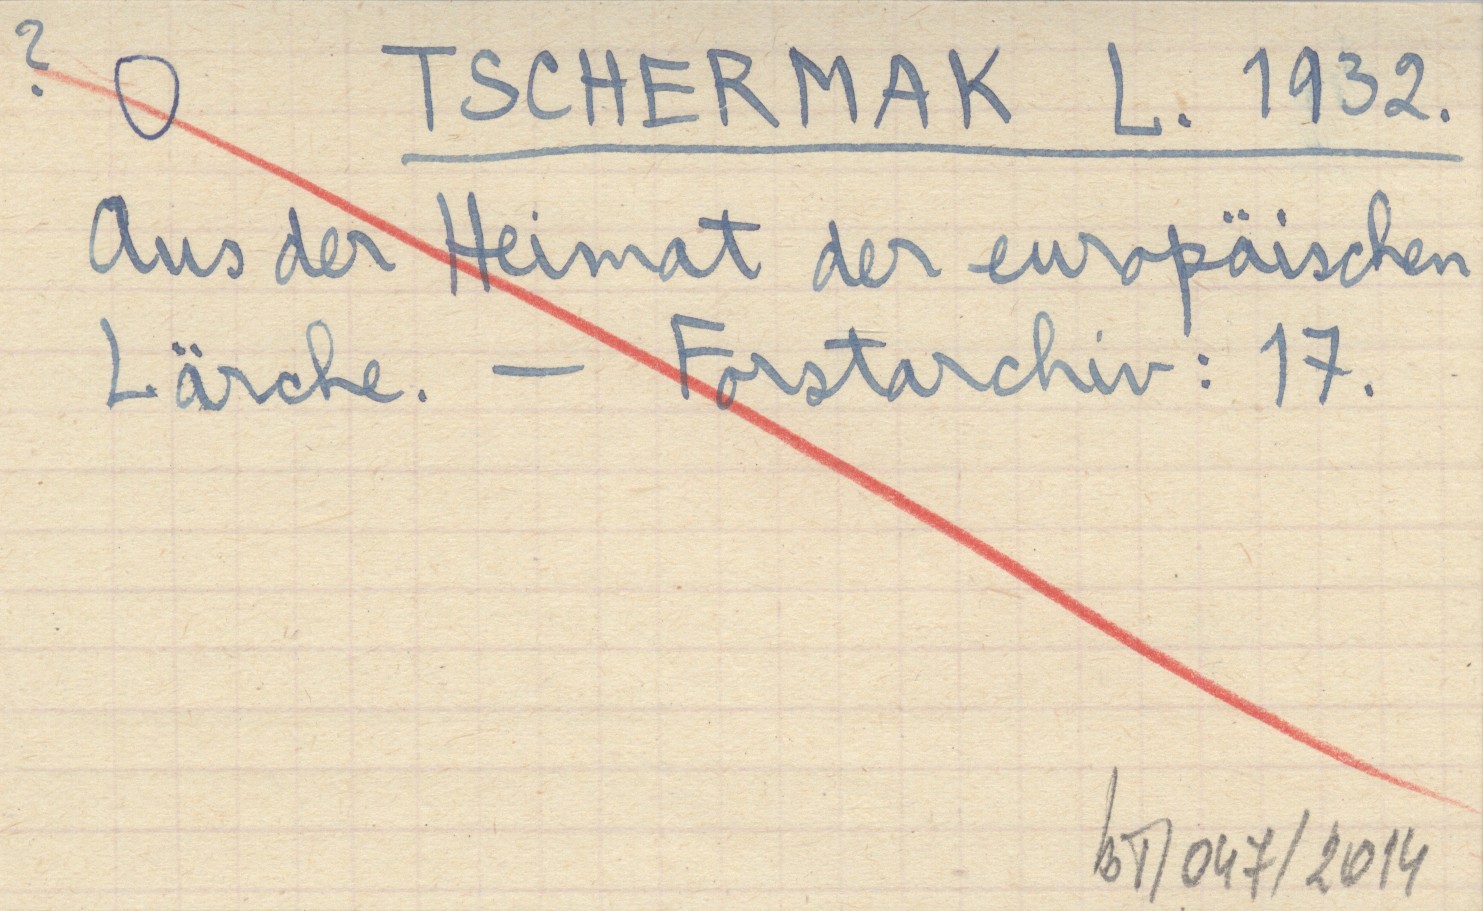 ? O TSCHERMAK L. 1932.
Aus der Heimat der europäischen
Lärche. — Forstarchiv: 17.
/047/2014